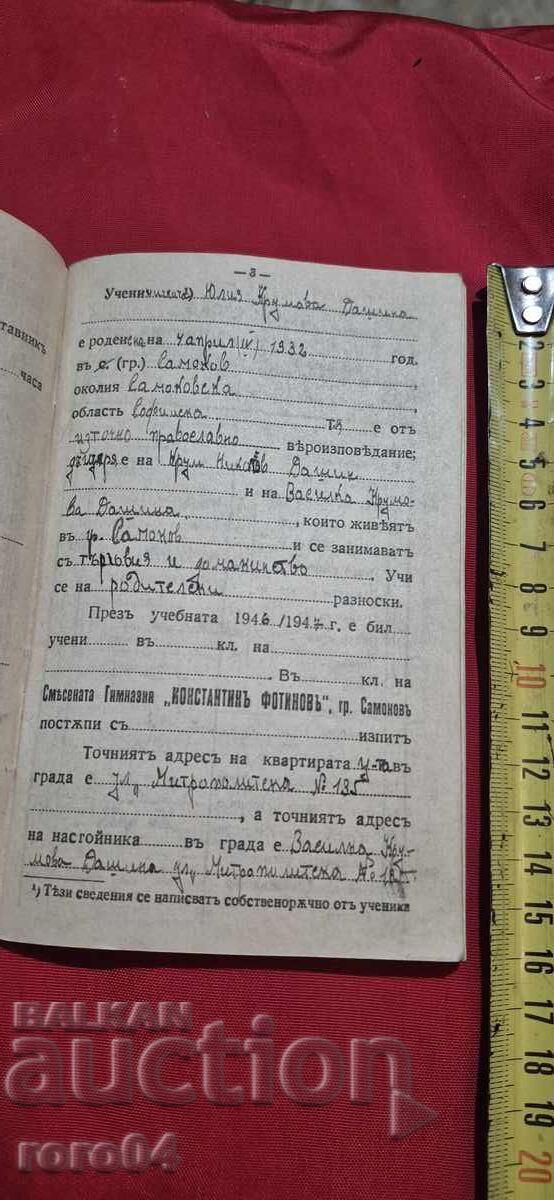 тавникъ
часа
— 3 —
Учени ¹) Юлия Крумова Дашина
е родена на 4 април (IV) 1932 год.
въ с. (гр.) Самоков,
околия Самоковска
област Софийска Тя е отъ
източно православно вѣроизповѣдание;
дъщеря е на Крум Николов Дашин
и на Василка Крумо-
ва Дашина, които живѣятъ
въ гр. Самоков и се занимаватъ
съ търговия и домакинство. Учи
се на родителски разноски.
Презъ учебната 1946/1947 г. е бил
учени въ кл. на
Въ кл. на
Смѣсената Гимназия „КОНСТАНТИНЪ ФОТИНОВЪ", гр. Самоковъ
постѫпи съ изпитъ
Точниятъ адресъ на квартирата въ
града е ул. Митрополитска № 135
, а точниятъ адресъ
на настойника въ града е Василка Кру-
мова Дашина ул. Митрополитска №
¹) Тѣзи сведения се написватъ собственорѫчно отъ ученика
2
3
4
5
6
7
8
9
10
11
12
13
14
15
16
17
18
19
20
BALKAN
auction
roro04